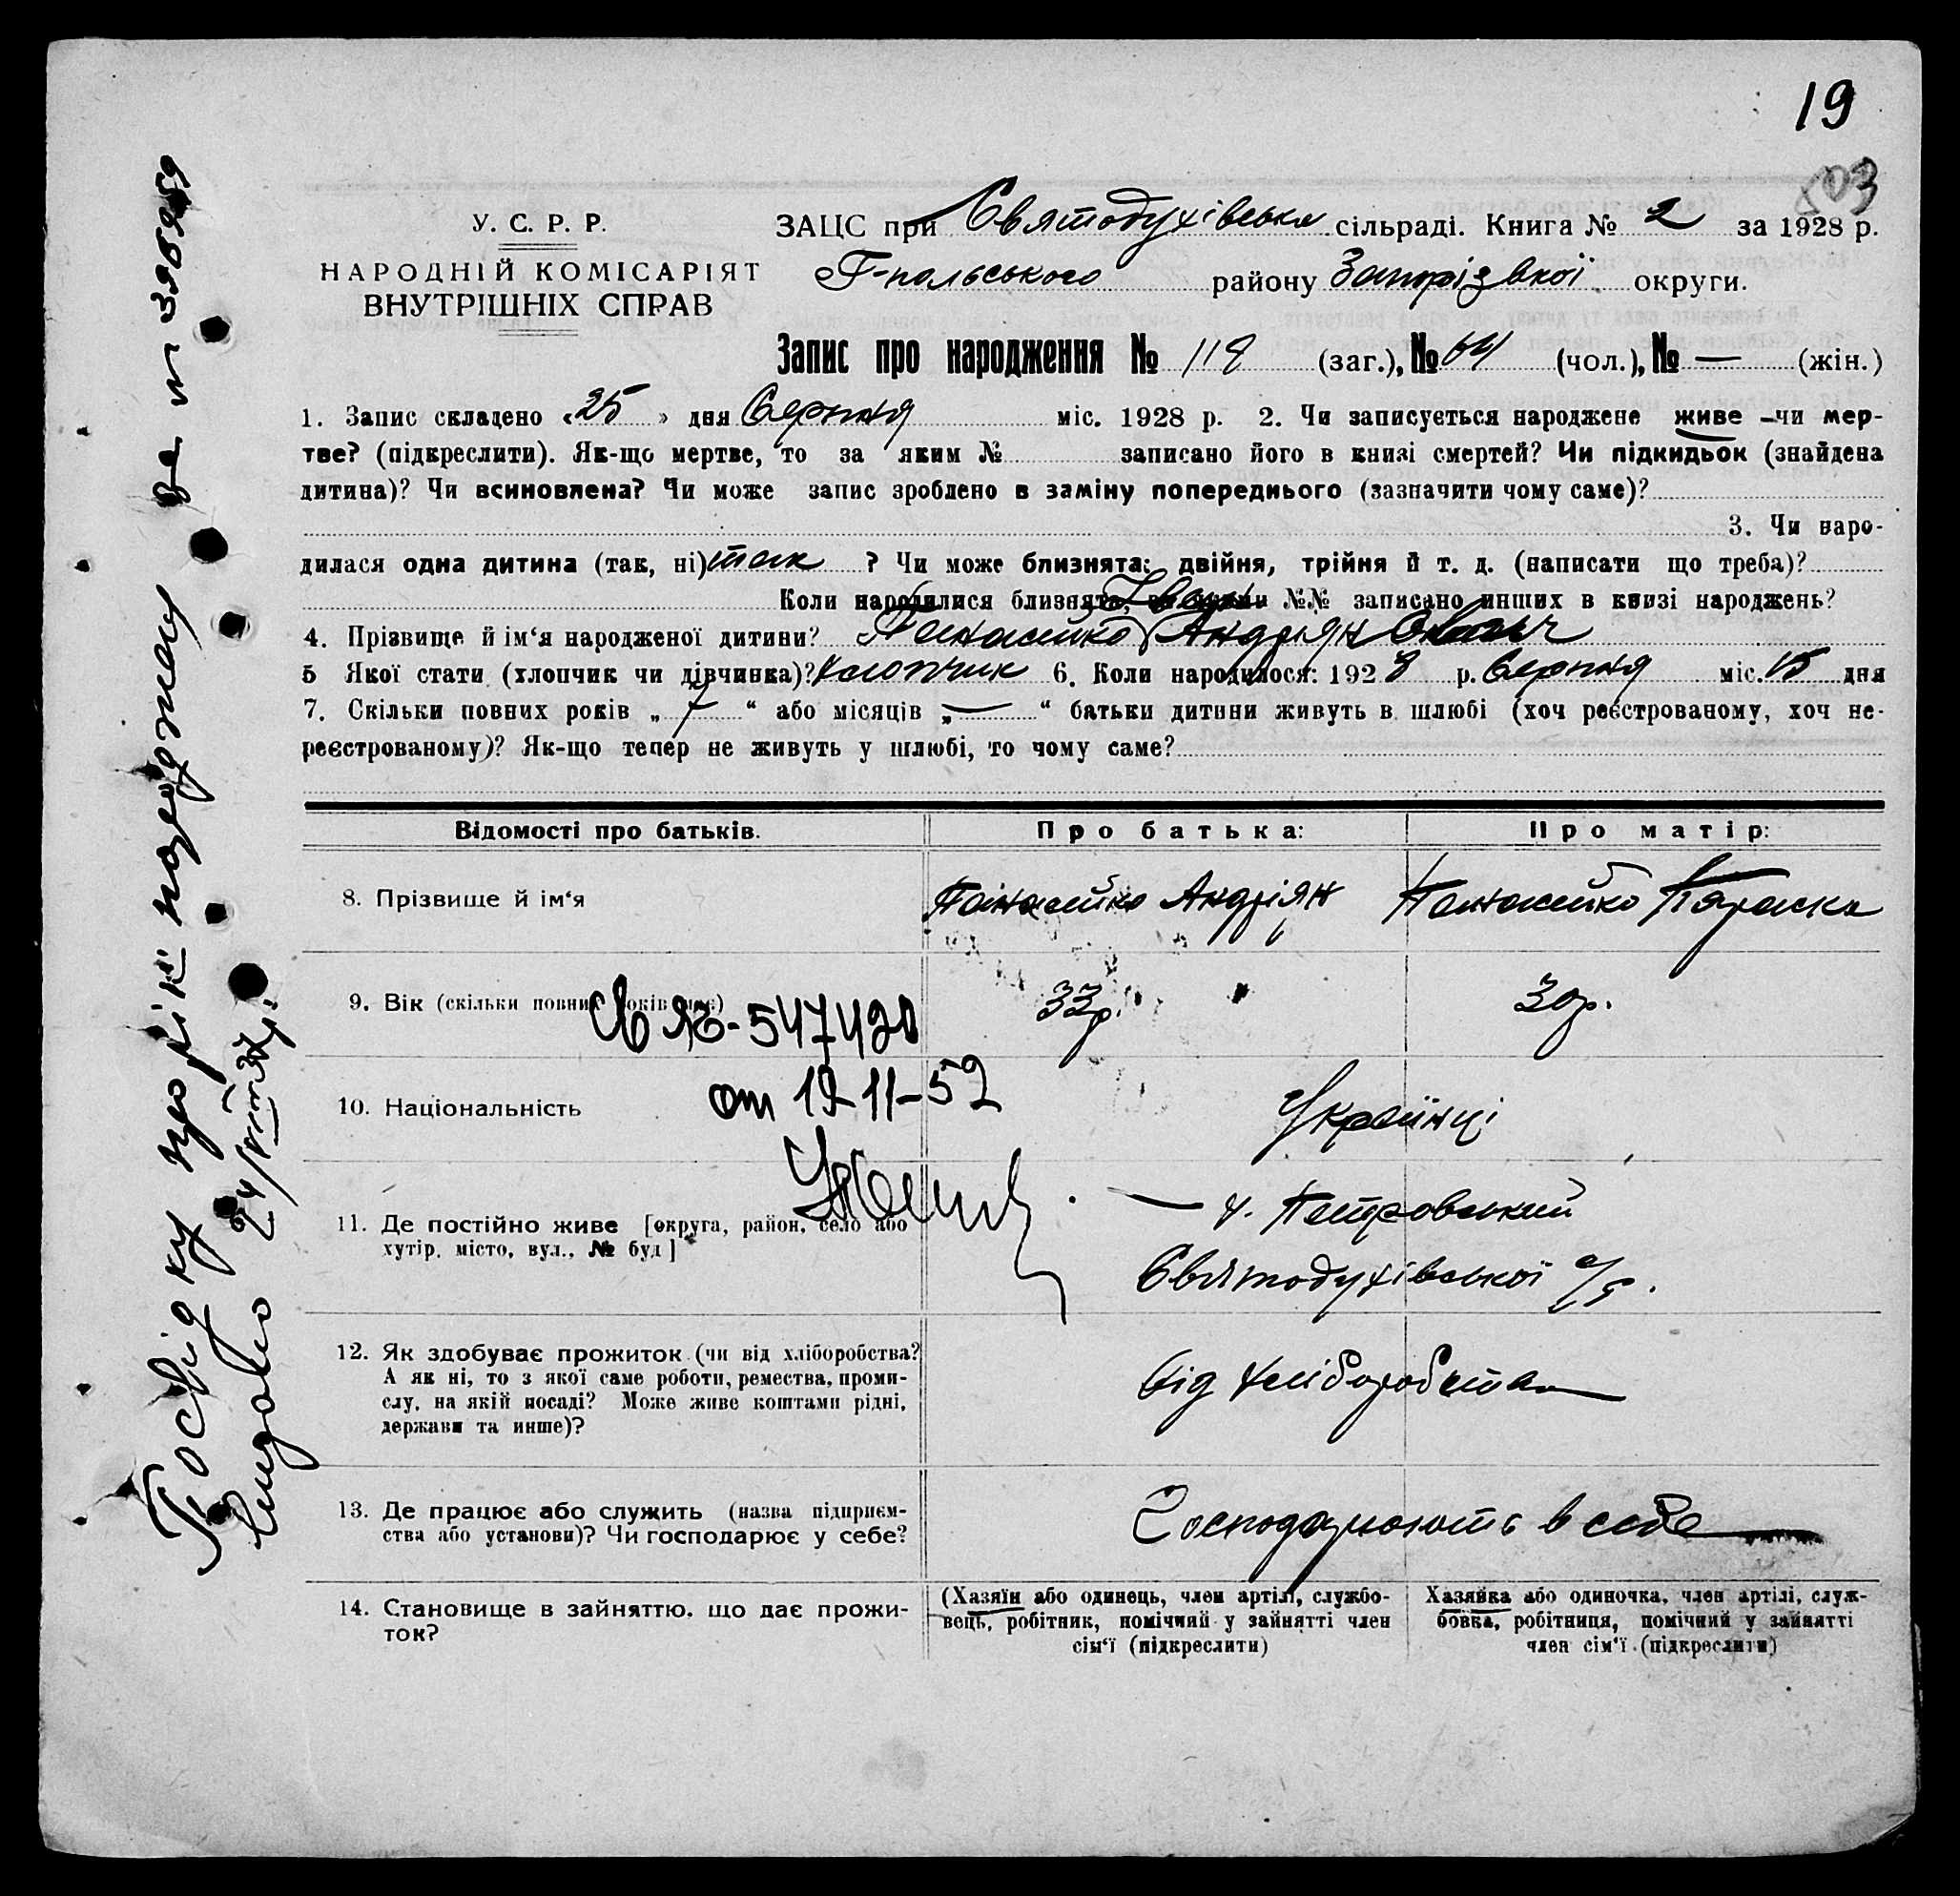 19
103
У. С. Р. Р.
НАРОДНІЙ КОМІСАРІЯТ
ВНУТРІШНІХ СПРАВ
ЗАЦС при Святодухівська сільраді. Книга № 2 за 1928 р.
Г-польського району Запорізької округи.
Запис про народження № 118 (заг.), № 64 (чол.), № — (жін.)
1. Запис складено «25» дня Серпня міс. 1928 р. 2. Чи записується народжене живе – чи мер-
тве? (підкреслити). Як-що мертве, то за яким № записано його в книзі смертей? Чи підкидьок (знайдена
дитина)? Чи всиновлена? Чи може запис зроблено в заміну попереднього (зазначити чому саме)?
3. Чи наро-
дилася одна дитина (так, ні) так ? Чи може близнята: двійня, трійня й т. д. (написати що треба)?
Коли народилися близнята, №№ записано инших в книзі народжень?
4. Прізвище й ім‘я народженої дитини? Панасейко Андріян
5 Якої стати (хлопчик чи дівчинка)? хлопчик 6. Коли народилося: 1928 р. Серпня міс. 15 дня
7. Скільки повних років „ 7 “ або місяців „ — “ батьки дитини живуть в шлюбі (хоч реєстрованому, хоч не-
реєстрованому)? Як-що тепер не живуть у шлюбі, то чому саме?
Відомості про батьків. Про батька: Про матір:
8. Прізвище й ім‘я Панасейко Андріян Панасейко Параска
9. Вік (скільки повних років має) 33р. 30р.
547420
от 19-11-52
10. Національність Українці
11. Де постійно живе [округа, район, село або
хутір, місто, вул., № буд] — х. Петровський
Святодухівської с/р.
12. Як здобуває прожиток (чи від хліборобства?
А як ні, то з якої саме роботи, ремества, проми-
слу, на якій посаді? Може живе коштами рідні,
держави та инше)?
від хліборобства
13. Де працює або служить (назва підприєм-
ства або установи)? Чи господарює у себе?
Господарюють в себе
14. Становище в зайняттю, що дає прожи-
ток?
(Хазяїн або одинець, член артілі, службо-
вець, робітник, помічний у зайнятті член
сім‘ї (підкреслити)
Хазяйка або одиночка, член артілі, служ-
бовка, робітниця, помічний у зайнятті
член сім‘ї (підкреслити)
Посвідку про рік народження за №
видано 24/